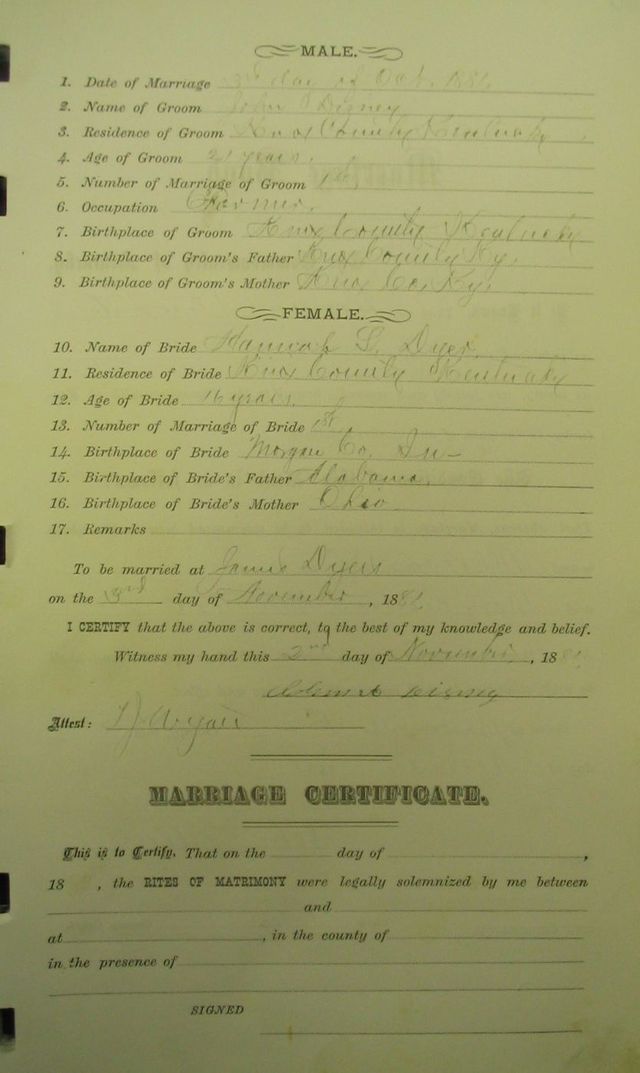 MALE.
1. Date of Marriage 3rd day of Oct. 188
2. Name of Groom John Disney
3. Residence of Groom Knox County Kentucky
4. Age of Groom 21 years.
5. Number of Marriage of Groom 1st
6. Occupation Farmer.
7. Birthplace of Groom Knox County Kentucky
8. Birthplace of Groom's Father Knox County Ky.
9. Birthplace of Groom's Mother Knox Co. Ky.
FEMALE.
10. Name of Bride Hannah S. Dyer
11. Residence of Bride Knox County Kentucky
12. Age of Bride 16 years.
13. Number of Marriage of Bride 1st
14. Birthplace of Bride Morgan Co.
15. Birthplace of Bride's Father Alabama.
16. Birthplace of Bride's Mother Ohio
17. Remarks
To be married at Dyers
on the 3rd day of November, 188
I CERTIFY that the above is correct, to the best of my knowledge and belief.
Witness my hand this 2nd day of November, 18
Disney
Attest:
MARRIAGE CERTIFICATE.
This is to Certify, That on the day of ,
18 , the RITES OF MATRIMONY were legally solemnized by me between
and
at , in the county of
in the presence of
SIGNED